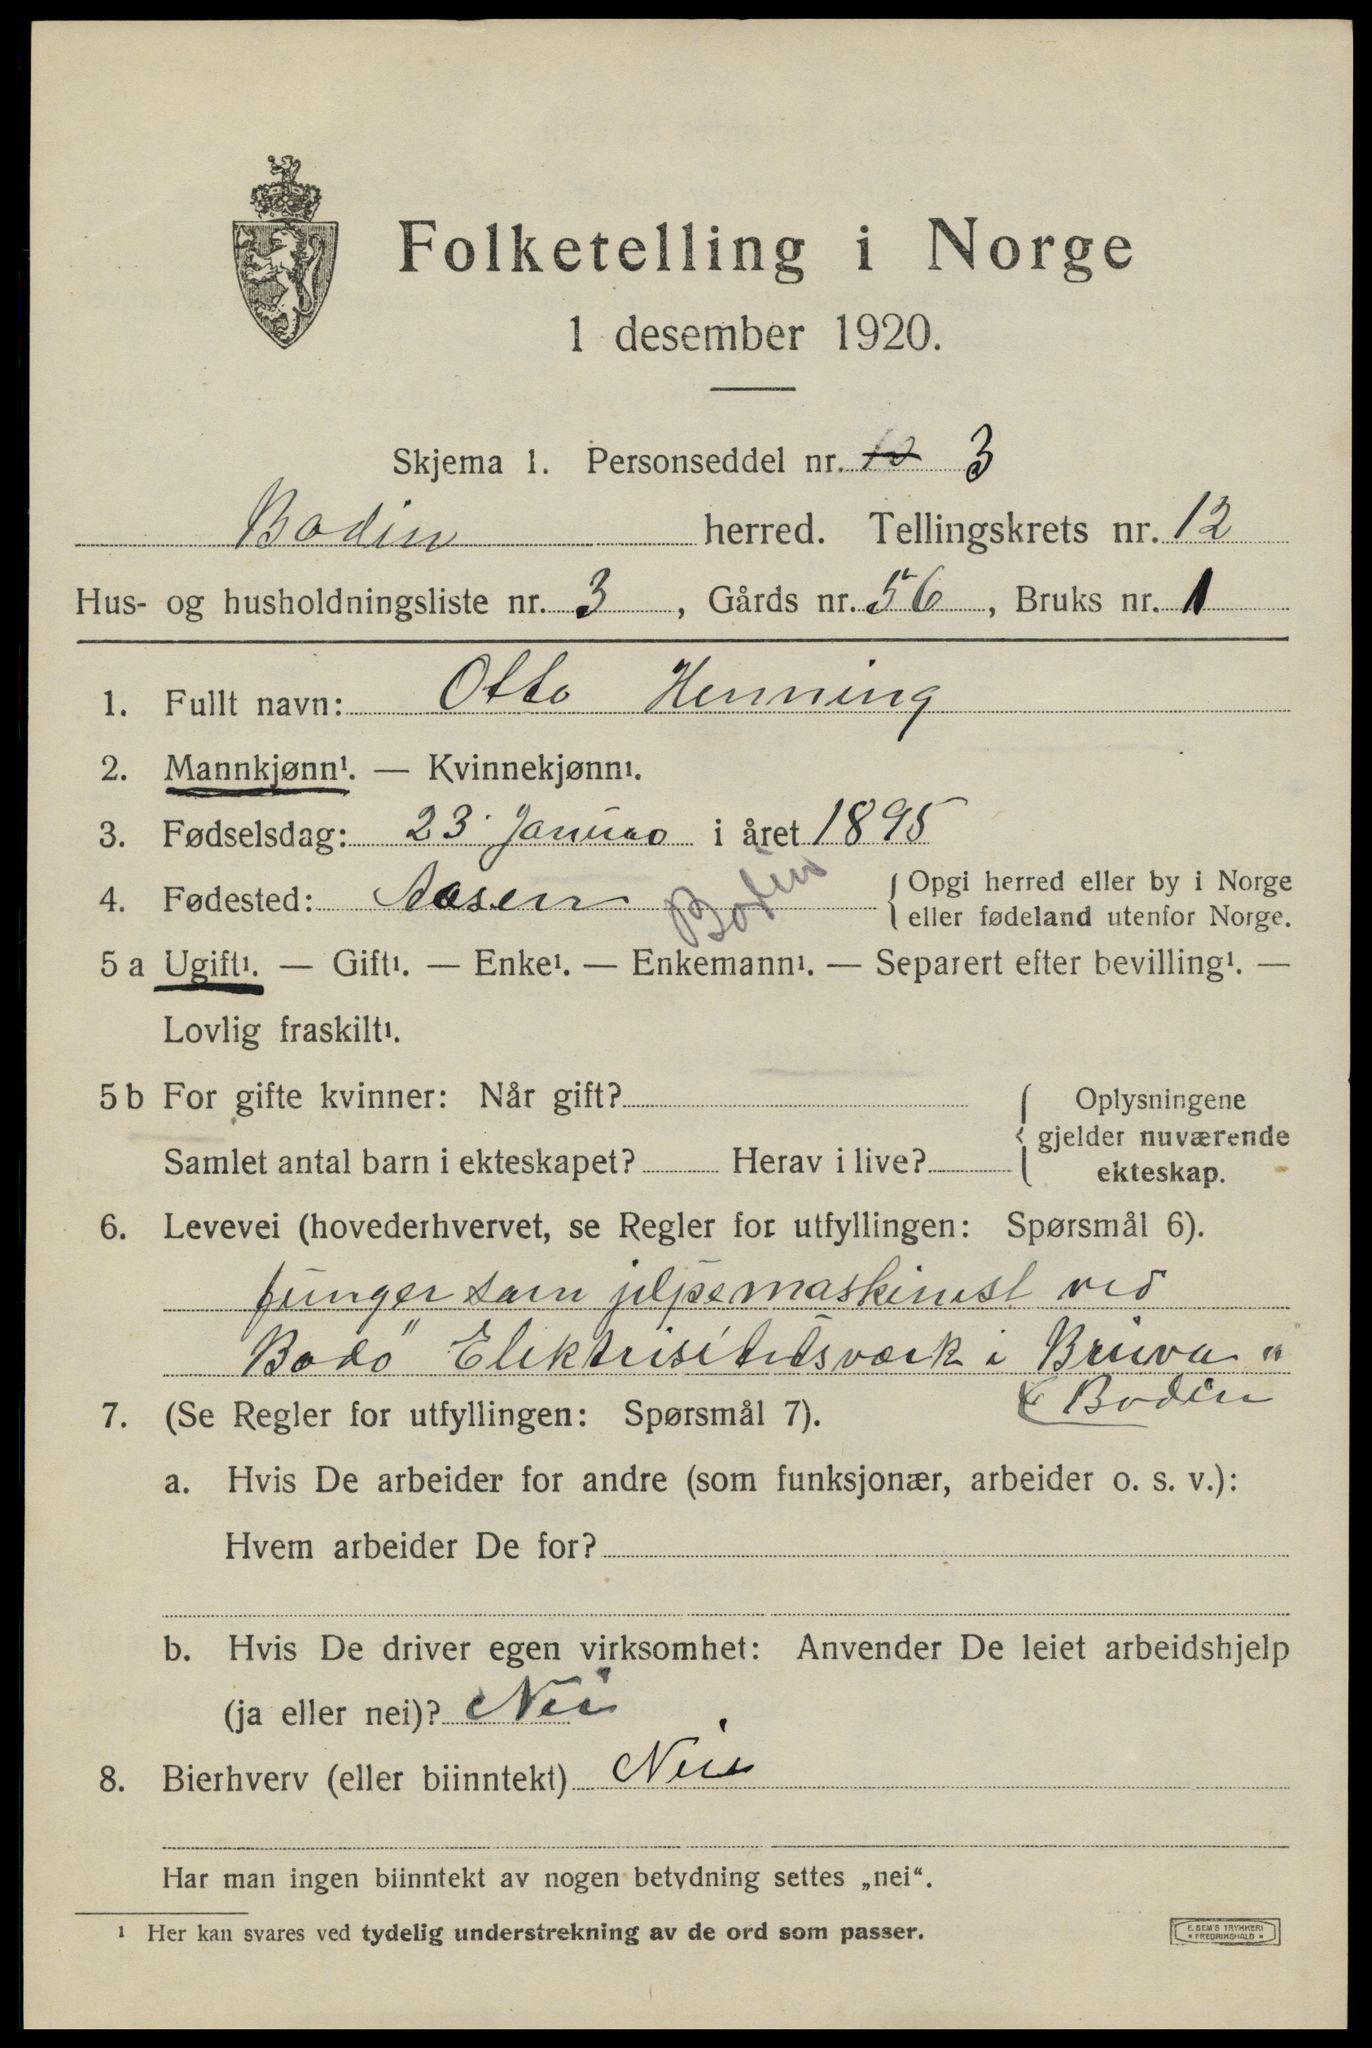 Folketelling i Norge
1 desember 1920.
Skjema 1. Personseddel nr. 12 3
Bodin herred. Tellingskrets nr. 12
Hus- og husholdningsliste nr. 3, Gårds nr. 56, Bruks nr. 1
1. Fullt navn: Otto Henning
2. Mannkjønn¹. — Kvinnekjønn¹.
3. Fødselsdag: 23 Januar i året 1895
4. Fødested: Aasen Bodin { Opgi herred eller by i Norge
eller fødeland utenfor Norge.
5 a Ugift¹. — Gift¹. — Enke¹. — Enkemann¹. — Separert efter bevilling¹. —
Lovlig fraskilt¹.
5 b For gifte kvinner: Når gift? { Oplysningene
gjelder nuværende
Samlet antal barn i ekteskapet? Herav i live? ekteskap.
6. Levevei (hovederhvervet, se Regler for utfyllingen: Spørsmål 6).
funger som jelpemaskinist ved
Bodö Elektrisitetsværk i Bruva "
Bodin
7. (Se Regler for utfyllingen: Spørsmål 7).
a. Hvis De arbeider for andre (som funksjonær, arbeider o. s. v.):
Hvem arbeider De for?
b. Hvis De driver egen virksomhet: Anvender De leiet arbeidshjelp
(ja eller nei)? Nei
8. Bierhverv (eller biinntekt) Nei
Har man ingen biinntekt av nogen betydning settes „nei“.
¹ Her kan svares ved tydelig understrekning av de ord som passer.
E. SEM'S TRYKKERI
* FREDRIKSHALD *